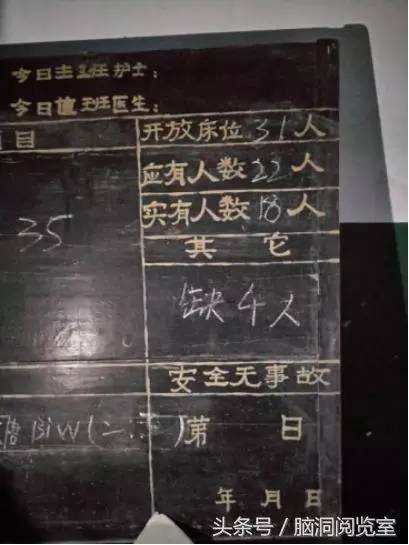 今日主班护士:
今日值班医生:
目 开放床位31人
应有人数22人
35 实有人数18人
其它
缺4人
安全无事故
BiW(二.三)第 日
年月日
搜狐号/脑洞阅览室